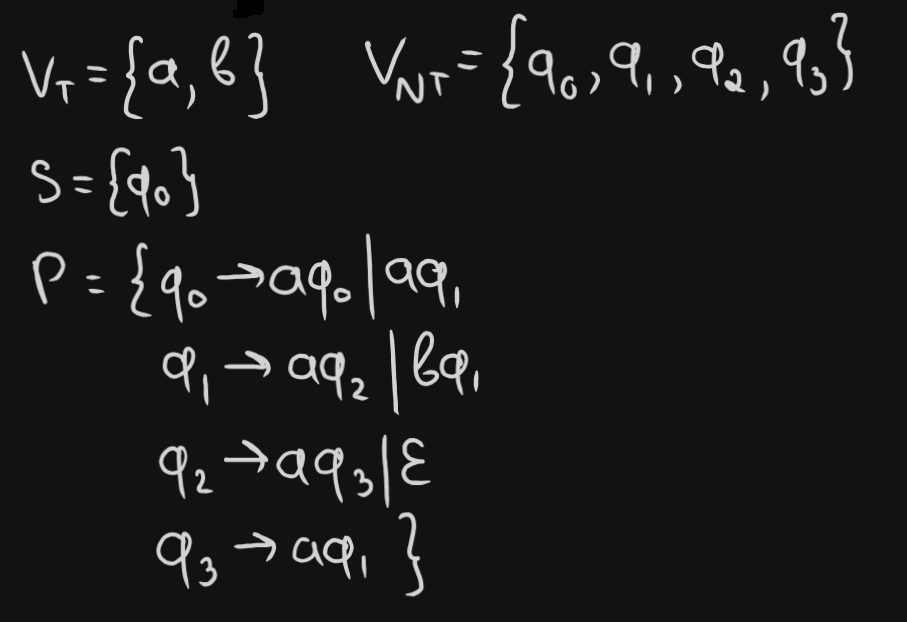 V_T = {a, b}   V_NT = {q_0, q_1, q_2, q_3}
S = {q_0}
P = {q_0 → aq_0 | aq_1
q_1 → aq_2 | bq_1
q_2 → aq_3 | ε
q_3 → aq_1 }